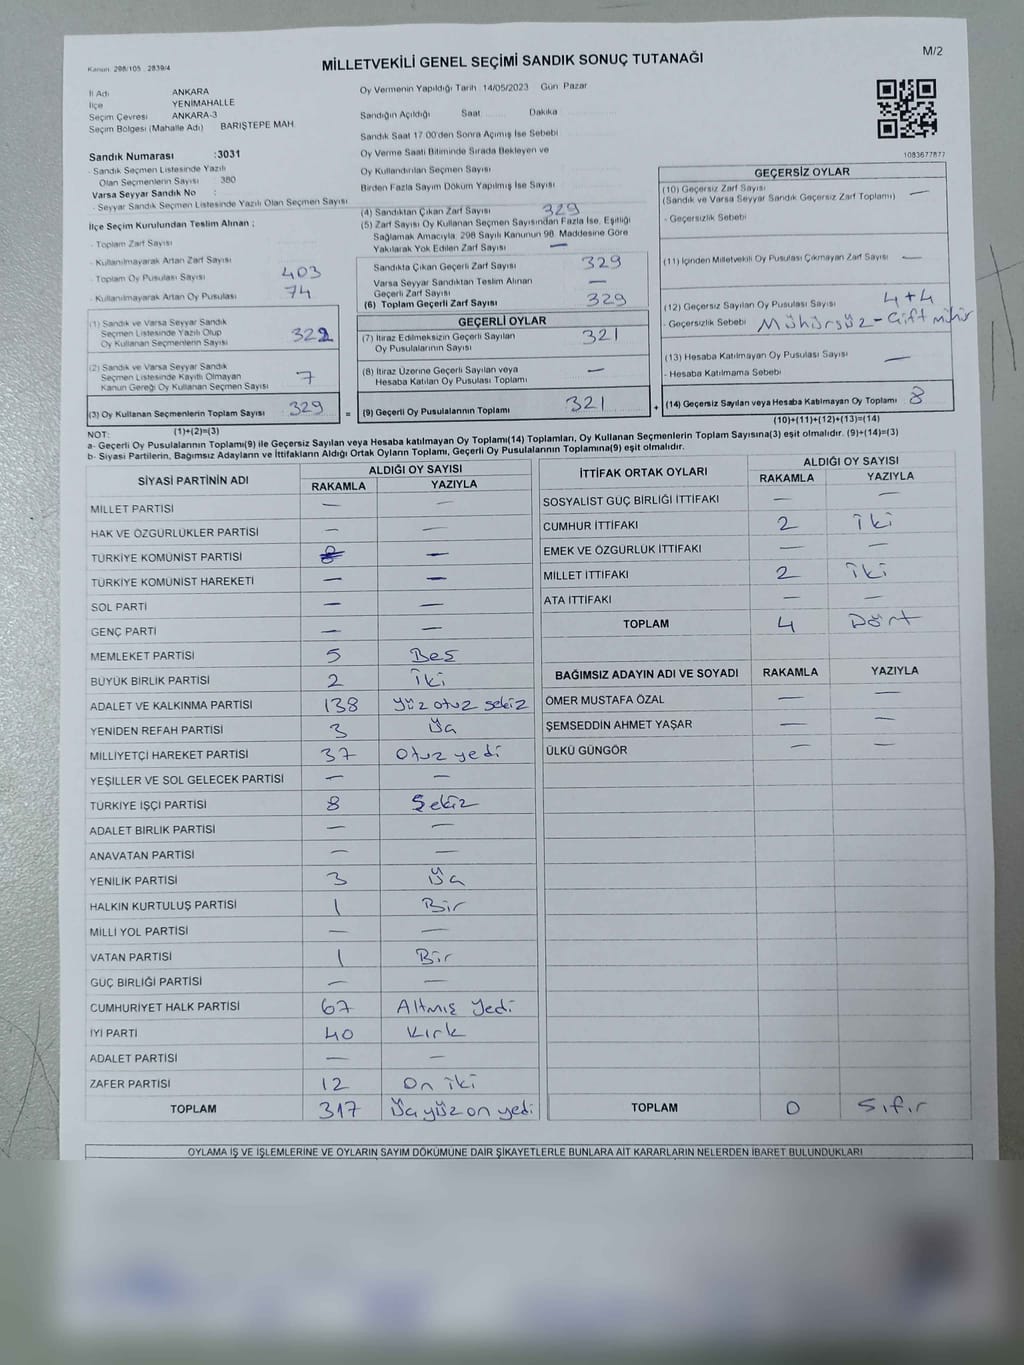 Kanun 298/105 . 2839/4
MİLLETVEKİLİ GENEL SEÇİMİ SANDIK SONUÇ TUTANAĞI
M/2
İl Adı ANKARA
İlçe YENİMAHALLE
Seçim Çevresi ANKARA-3
Seçim Bölgesi (Mahalle Adı) BARIŞTEPE MAH.
Sandık Numarası :3031
- Sandık Seçmen Listesinde Yazılı
Olan Seçmenlerin Sayısı : 380
Varsa Seyyar Sandık No :
- Seyyar Sandık Seçmen Listesinde Yazılı Olan Seçmen Sayısı
İlçe Seçim Kurulundan Teslim Alınan ;
- Toplam Zarf Sayısı
- Kullanılmayarak Artan Zarf Sayısı
- Toplam Oy Pusulası Sayısı 403
- Kullanılmayarak Artan Oy Pusulası 74
(1) Sandık ve Varsa Seyyar Sandık
Seçmen Listesinde Yazılı Olup
Oy Kullanan Seçmenlerin Sayısı 322
(2) Sandık ve Varsa Seyyar Sandık
Seçmen Listesinde Kayıtlı Olmayan
Kanun Gereği Oy Kullanan Seçmen Sayısı 7
(3) Oy Kullanan Seçmenlerin Toplam Sayısı 329 =
(1)+(2)=(3)
Oy Vermenin Yapıldığı Tarih 14/05/2023 Gün Pazar
Sandığın Açıldığı Saat Dakika
Sandık Saat 17.00'den Sonra Açılmış İse Sebebi
Oy Verme Saati Bitiminde Sırada Bekleyen ve
Oy Kullandırılan Seçmen Sayısı
Birden Fazla Sayım Döküm Yapılmış İse Sayısı
(4) Sandıktan Çıkan Zarf Sayısı 329
(5) Zarf Sayısı Oy Kullanan Seçmen Sayısından Fazla İse, Eşitliği
Sağlamak Amacıyla, 298 Sayılı Kanunun 98. Maddesine Göre
Yakılarak Yok Edilen Zarf Sayısı —
Sandıkta Çıkan Geçerli Zarf Sayısı 329
Varsa Seyyar Sandıktan Teslim Alınan
Geçerli Zarf Sayısı —
(6) Toplam Geçerli Zarf Sayısı 329
GEÇERLİ OYLAR
(7) İtiraz Edilmeksizin Geçerli Sayılan
Oy Pusulalarının Sayısı 321
(8) İtiraz Üzerine Geçerli Sayılan veya
Hesaba Katılan Oy Pusulası Toplamı —
(9) Geçerli Oy Pusulalarının Toplamı 321 +
1083677877
GEÇERSİZ OYLAR
(10) Geçersiz Zarf Sayısı
(Sandık ve Varsa Seyyar Sandık Geçersiz Zarf Toplamı) —
- Geçersizlik Sebebi
(11) İçinden Milletvekili Oy Pusulası Çıkmayan Zarf Sayısı —
(12) Geçersiz Sayılan Oy Pusulası Sayısı 4+4
- Geçersizlik Sebebi Mühürsüz - Çift mühür
(13) Hesaba Katılmayan Oy Pusulası Sayısı —
- Hesaba Katılmama Sebebi
(14) Geçersiz Sayılan veya Hesaba Katılmayan Oy Toplamı 8
(10)+(11)+(12)+(13)=(14)
NOT:
a- Geçerli Oy Pusulalarının Toplamı(9) ile Geçersiz Sayılan veya Hesaba katılmayan Oy Toplamı(14) Toplamları, Oy Kullanan Seçmenlerin Toplam Sayısına(3) eşit olmalıdır. (9)+(14)=(3)
b- Siyasi Partilerin, Bağımsız Adayların ve İttifakların Aldığı Ortak Oyların Toplamı, Geçerli Oy Pusulasının Toplamına(9) eşit olmalıdır.
SİYASİ PARTİNİN ADI ALDIĞI OY SAYISI
RAKAMLA YAZIYLA
MİLLET PARTİSİ — —
HAK VE ÖZGÜRLÜKLER PARTİSİ — —
TÜRKİYE KOMÜNİST PARTİSİ —
TÜRKİYE KOMÜNİST HAREKETİ — —
SOL PARTİ — —
GENÇ PARTİ — —
MEMLEKET PARTİSİ 5 Beş
BÜYÜK BİRLİK PARTİSİ 2 İki
ADALET VE KALKINMA PARTİSİ 138 Yüz otuz sekiz
YENİDEN REFAH PARTİSİ 3 Üç
MİLLİYETÇİ HAREKET PARTİSİ 37 Otuz yedi
YEŞİLLER VE SOL GELECEK PARTİSİ — —
TÜRKİYE İŞÇİ PARTİSİ 8 Sekiz
ADALET BİRLİK PARTİSİ — —
ANAVATAN PARTİSİ — —
YENİLİK PARTİSİ 3 Üç
HALKIN KURTULUŞ PARTİSİ 1 Bir
MİLLİ YOL PARTİSİ — —
VATAN PARTİSİ 1 Bir
GÜÇ BİRLİĞİ PARTİSİ — —
CUMHURİYET HALK PARTİSİ 67 Altmış Yedi
İYİ PARTİ 40 Kırk
ADALET PARTİSİ — —
ZAFER PARTİSİ 12 On iki
TOPLAM 317 Üçyüz on yedi
İTTİFAK ORTAK OYLARI ALDIĞI OY SAYISI
RAKAMLA YAZIYLA
SOSYALİST GÜÇ BİRLİĞİ İTTİFAKI — —
CUMHUR İTTİFAKI 2 İki
EMEK VE ÖZGÜRLÜK İTTİFAKI — —
MİLLET İTTİFAKI 2 İki
ATA İTTİFAKI — —
TOPLAM 4 Dört
BAĞIMSIZ ADAYIN ADI VE SOYADI RAKAMLA YAZIYLA
ÖMER MUSTAFA ÖZAL — —
ŞEMSEDDİN AHMET YAŞAR — —
ÜLKÜ GÜNGÖR — —
TOPLAM 0 Sıfır
OYLAMA İŞ VE İŞLEMLERİNE VE OYLARIN SAYIM DÖKÜMÜNE DAİR ŞİKAYETLERLE BUNLARA AİT KARARLARIN NELERDEN İBARET BULUNDUKLARI